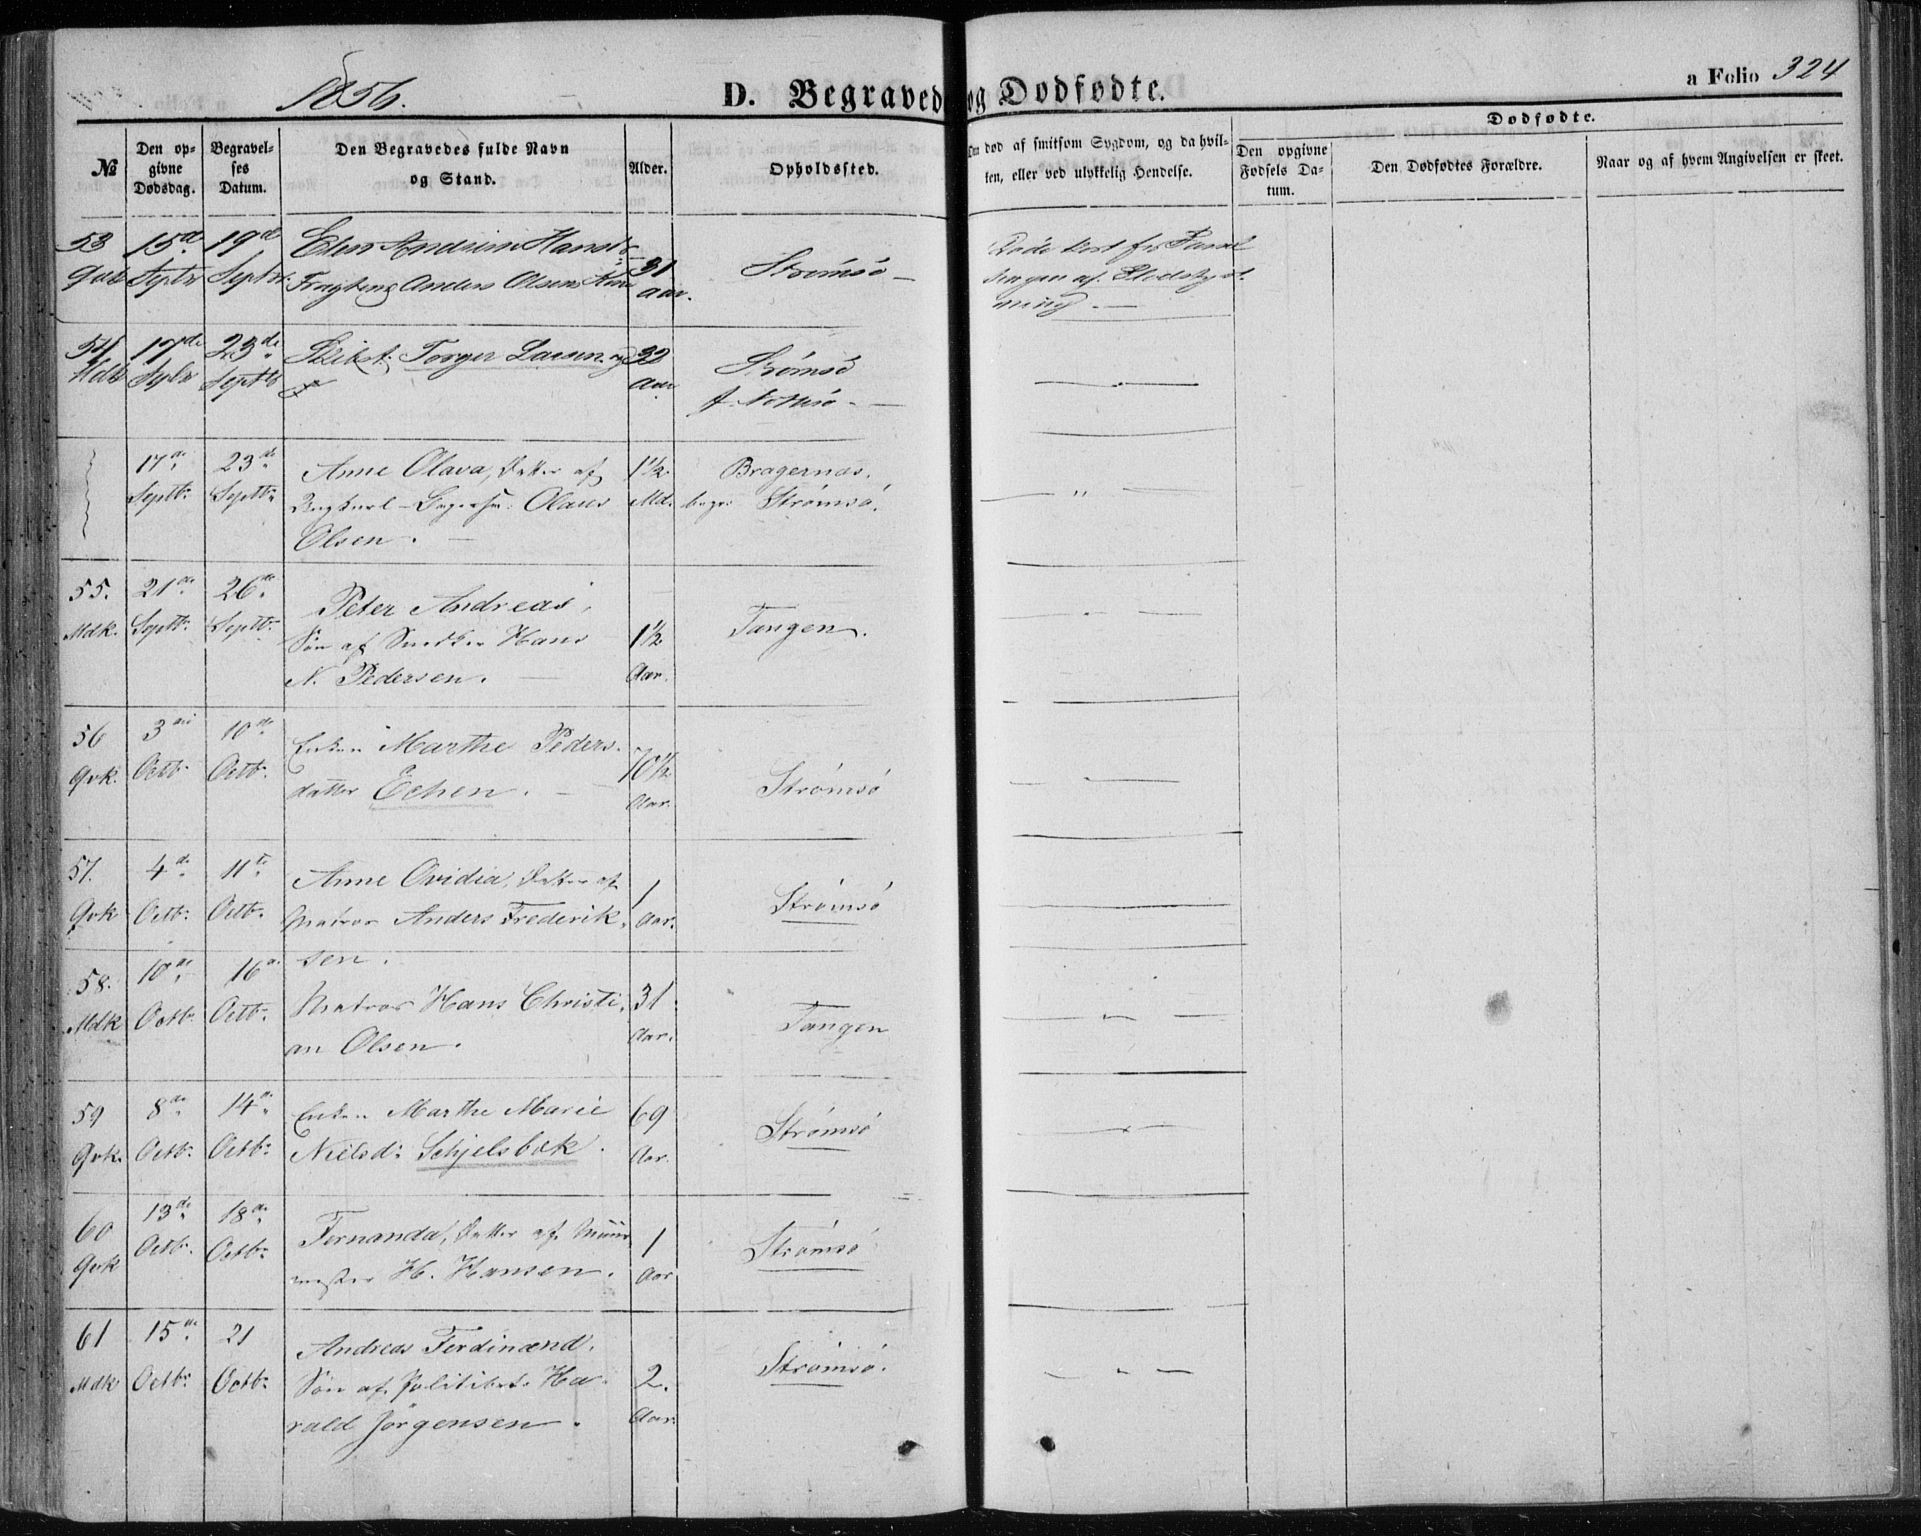 1856.
D. Begravede og Dødfødte.
a Folio 324
№
Den opgivne Dødsdag.
Begravelses Datum.
Den Begravedes fulde Navn og Stand.
Alder.
Opholdssted.
Om død af smitsom Sygdom, og da hvilken, eller ved ulykkelig Hendelse.
Dødfødte.
Den opgivne Fødsels Datum.
Den Dødfødtes Forældre.
Naar og af hvem Angivelsen er skeet.
53 15de 19de
Qvk Septbr Septbr
Anders Olsens Kone 31 Aar.
Strømsø
54 17de 23de Torger Larsen 32
Mdk Septbr Septbr Aar
Strømsø
17de 23de Anne Olava, Datter af 1½ Bragernæs.
Septbr. Septbr. Olaus Md. begr. Strømsø.
Olsen.
55. 21de 26de Peter Andreas,
Mdk. Septbr. Septbr. Søn af Snedker Hans 1½ Tangen.
N. Pedersen. Aar.
56 3die 10de Enken Marthe Peders-
Qvk. Octb. Octb. datter Echen. 70½ Aar. Strømsø
57. 4de 11te Anne Ovidia, Datter af 1
Qvk Octb. Octb. Matros Anders Frederik- Aar. Strømsø
sen.
58. 10de 16de Matros Hans Christi- 31
Mdk Octb. Octb. an Olsen. Aar. Tangen
59 8de 14de Enken Marthe Marie 69 Strømsø
Qvk. Octb. Octb. Nielsd: Schjelsbæk. Aar.
60 13de 18de Fernanda, Datter af Muur- 1 Strømsø
Qvk Octb. Octb. mester H. Hansen. Aar
61 15de 21 Andreas Ferdinand, Strømsø.
Mdk Octb. Octb. Søn af Politibet. Ha- 2.
rald Jørgensen. Aar.